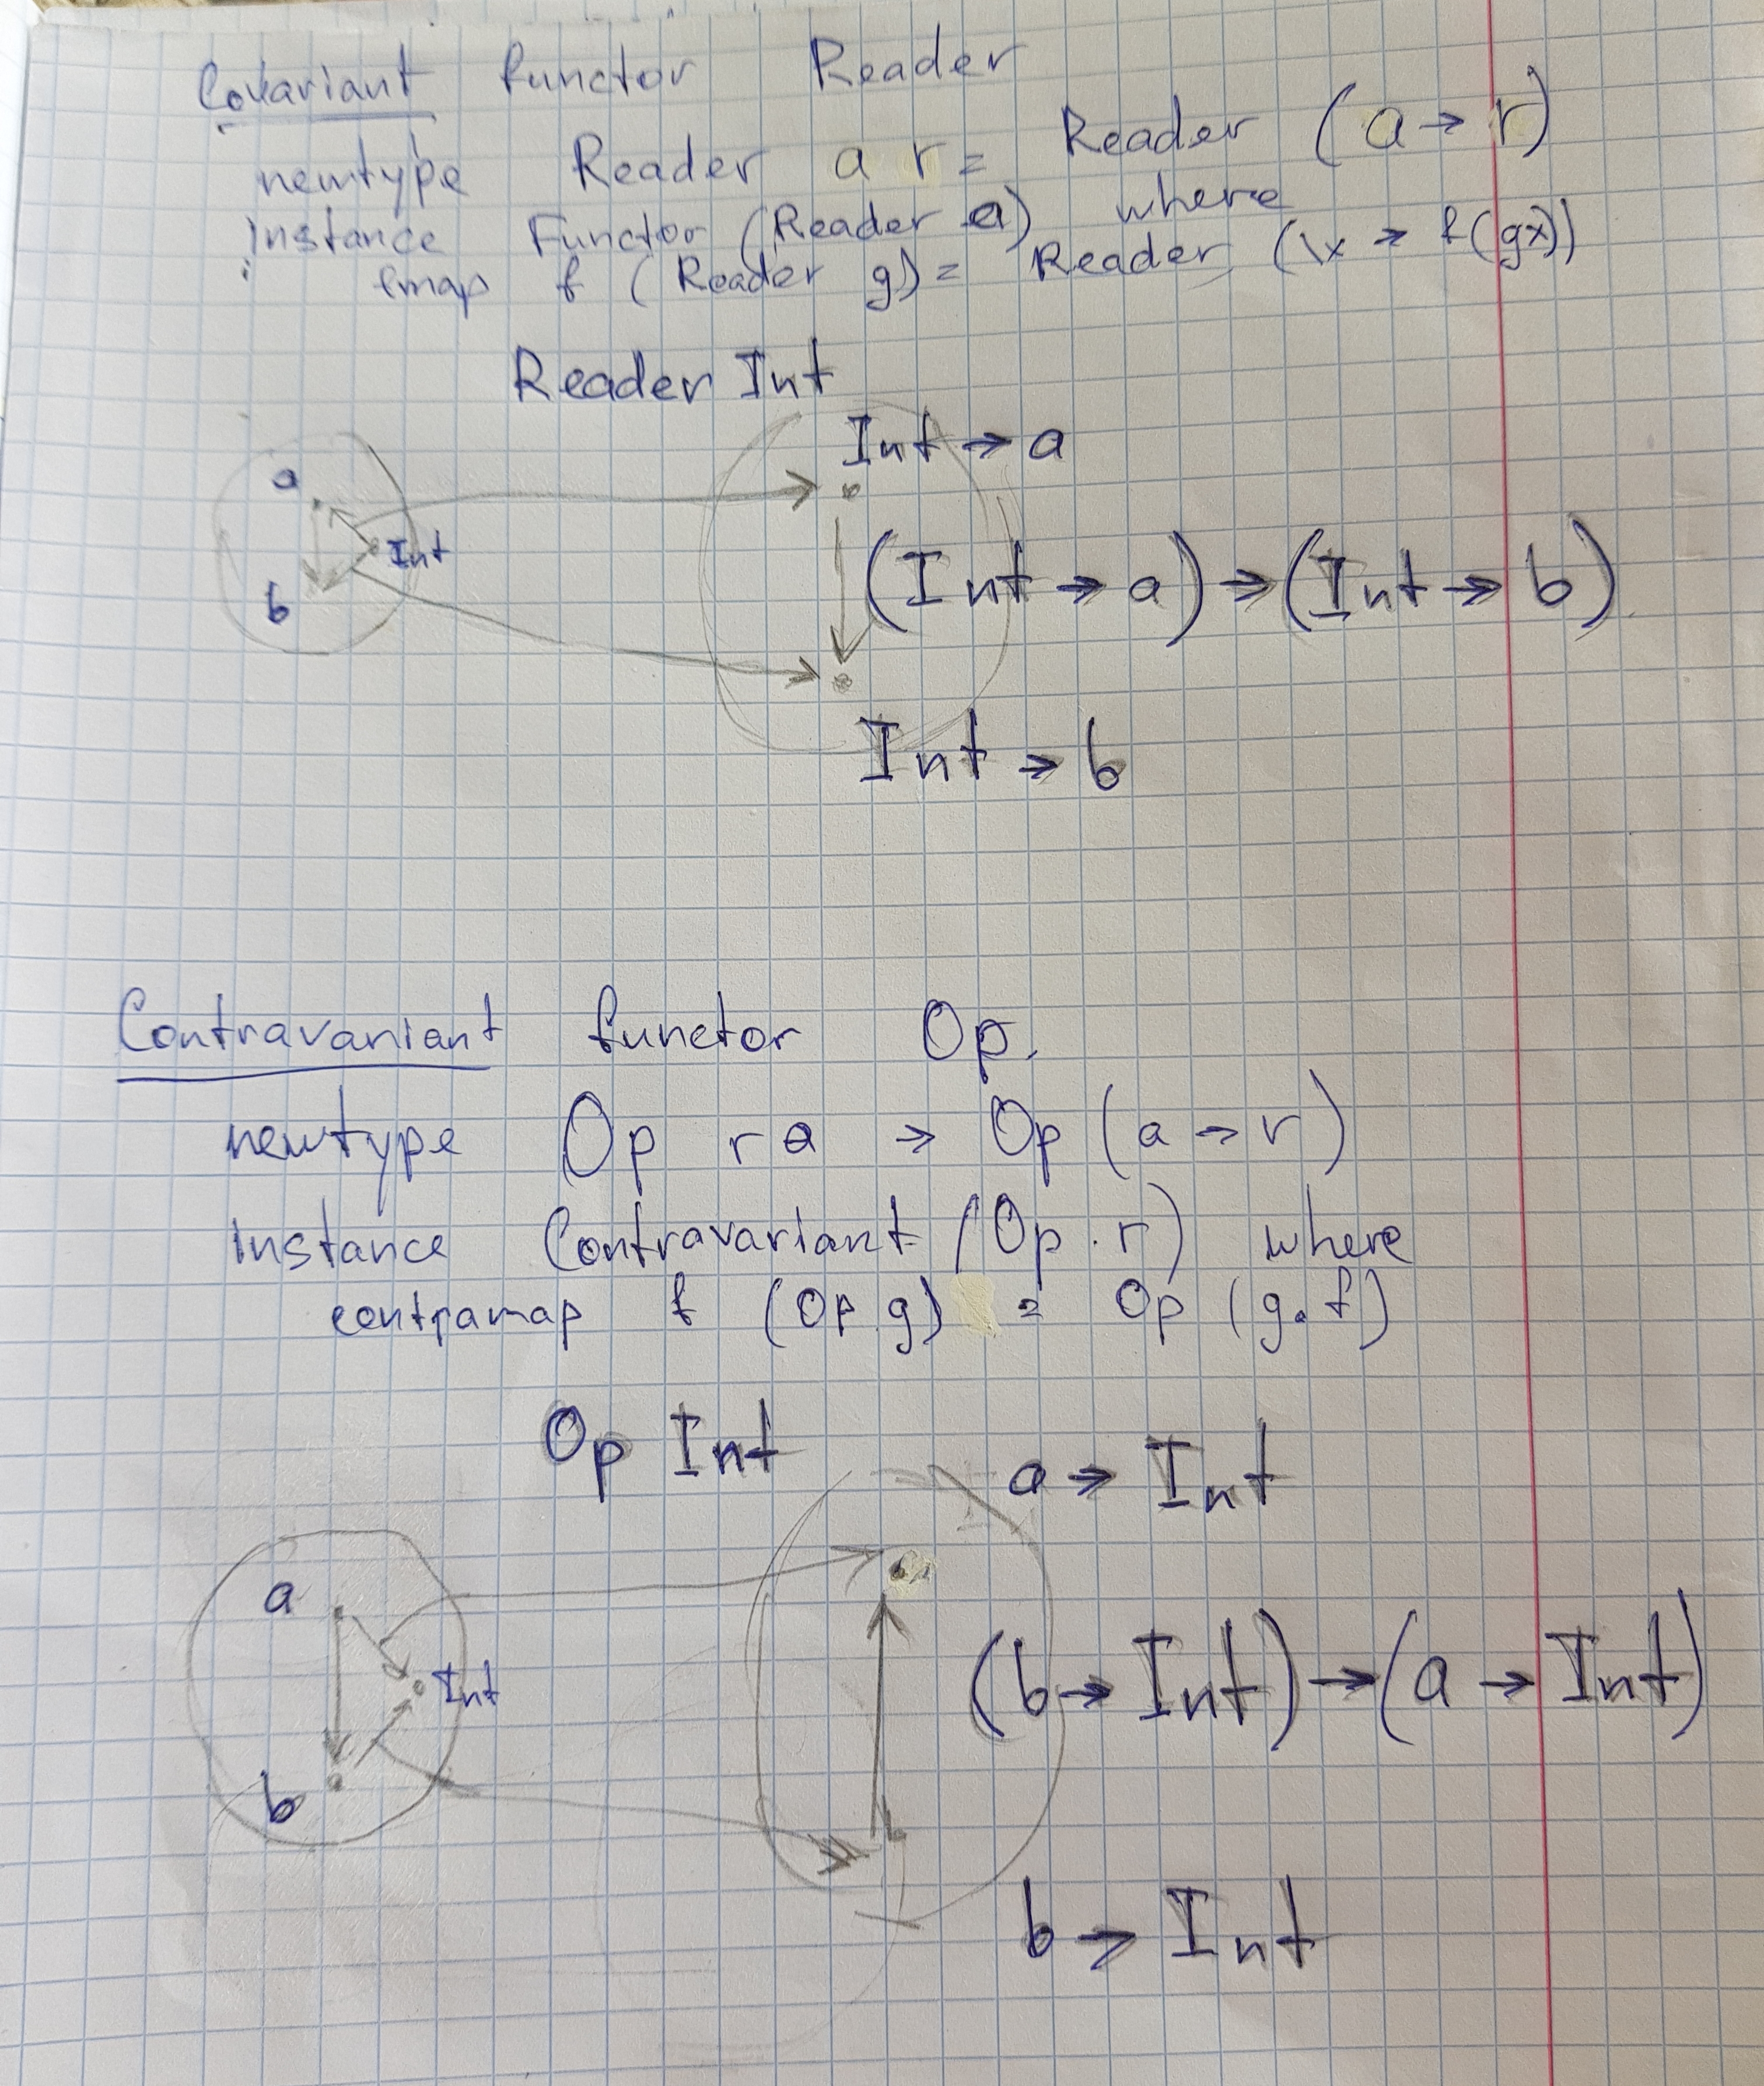 Covariant functor Reader
newtype Reader a r = Reader (a → r)
instance Functor (Reader a) where
fmap f (Reader g) = Reader (\x → f(gx))
Reader Int
Int → a
a
Int
(Int → a) → (Int → b)
b
Int → b
Contravariant functor Op.
newtype Op r a → Op (a → r)
instance Contravariant (Op r) where
contramap f (Op g) = Op (g. f)
Op Int
a → Int
a
Int
(b → Int) → (a → Int)
b
b → Int